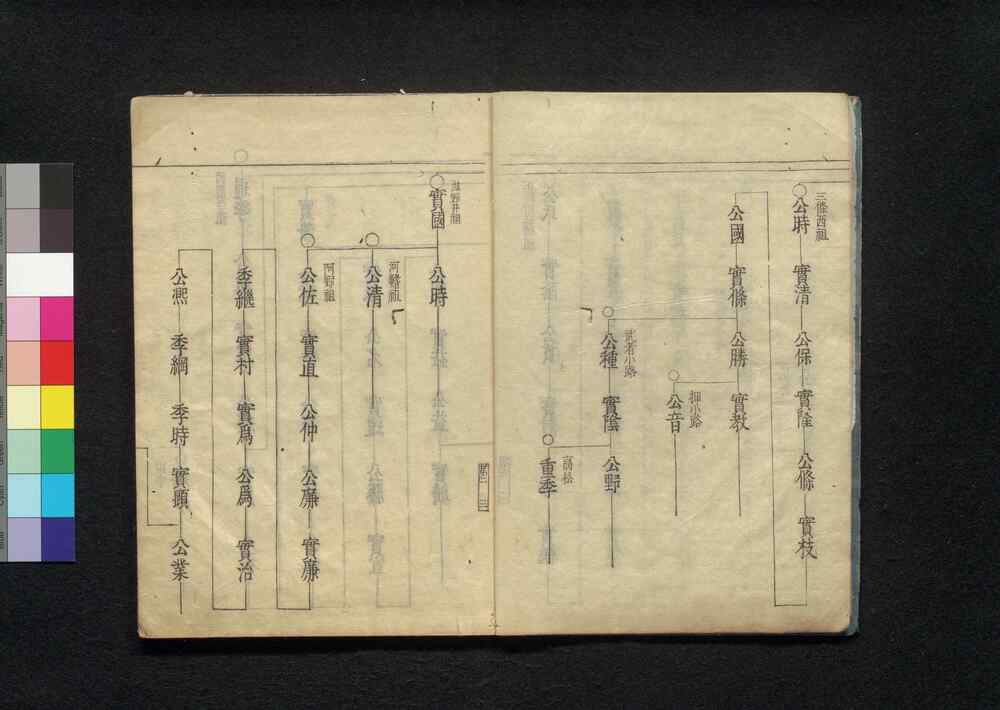 三條西祖
公時 實清 公保 實隆 公條 實枝
公國 實條 公勝 實教
押小路
公音
武者小路
公種 實陰 公野
高松
重季
滋野井祖
實國 公時
河鰭祖
公清
阿野祖
公佐 實直 公仲 公廉 實廉
季繼 實村 實爲 公爲 實治
公熙 季綱 季時 實顯 公業